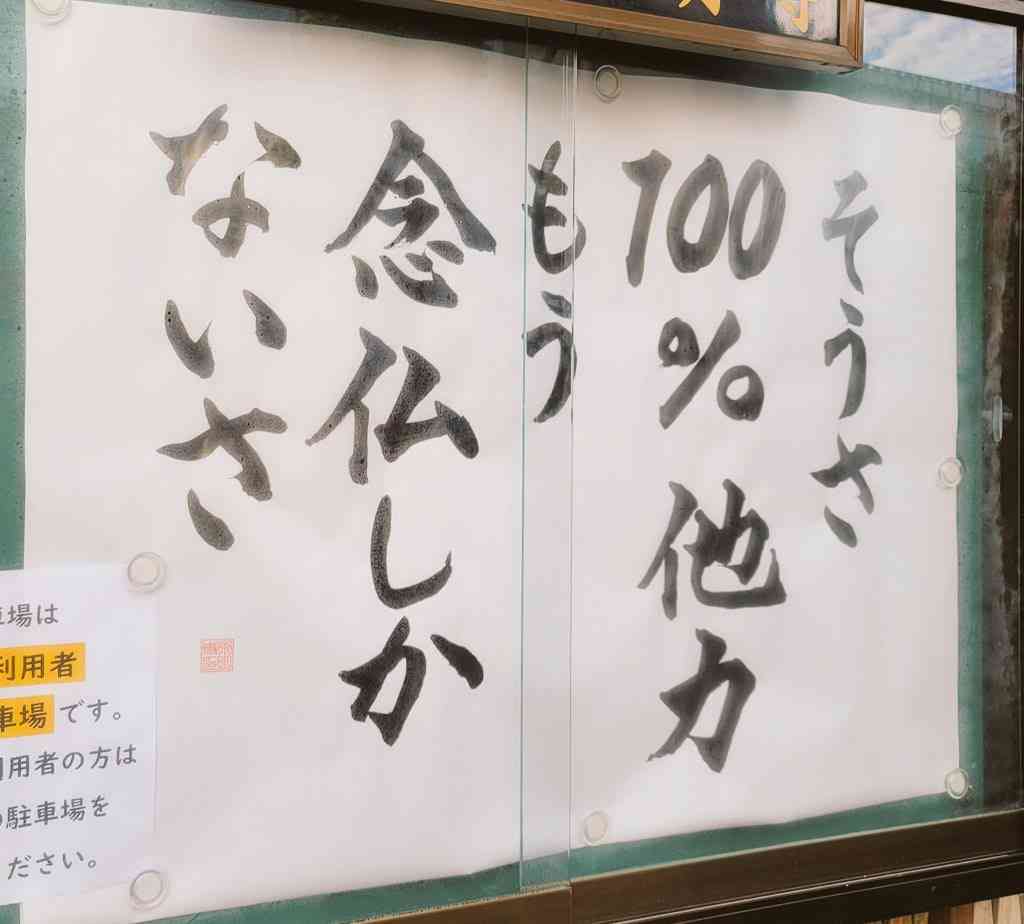 そうさ
100%他力
もう
念仏しか
ないさ
車場は
利用者
車場です。
用者の方は
駐車場を
ださい。